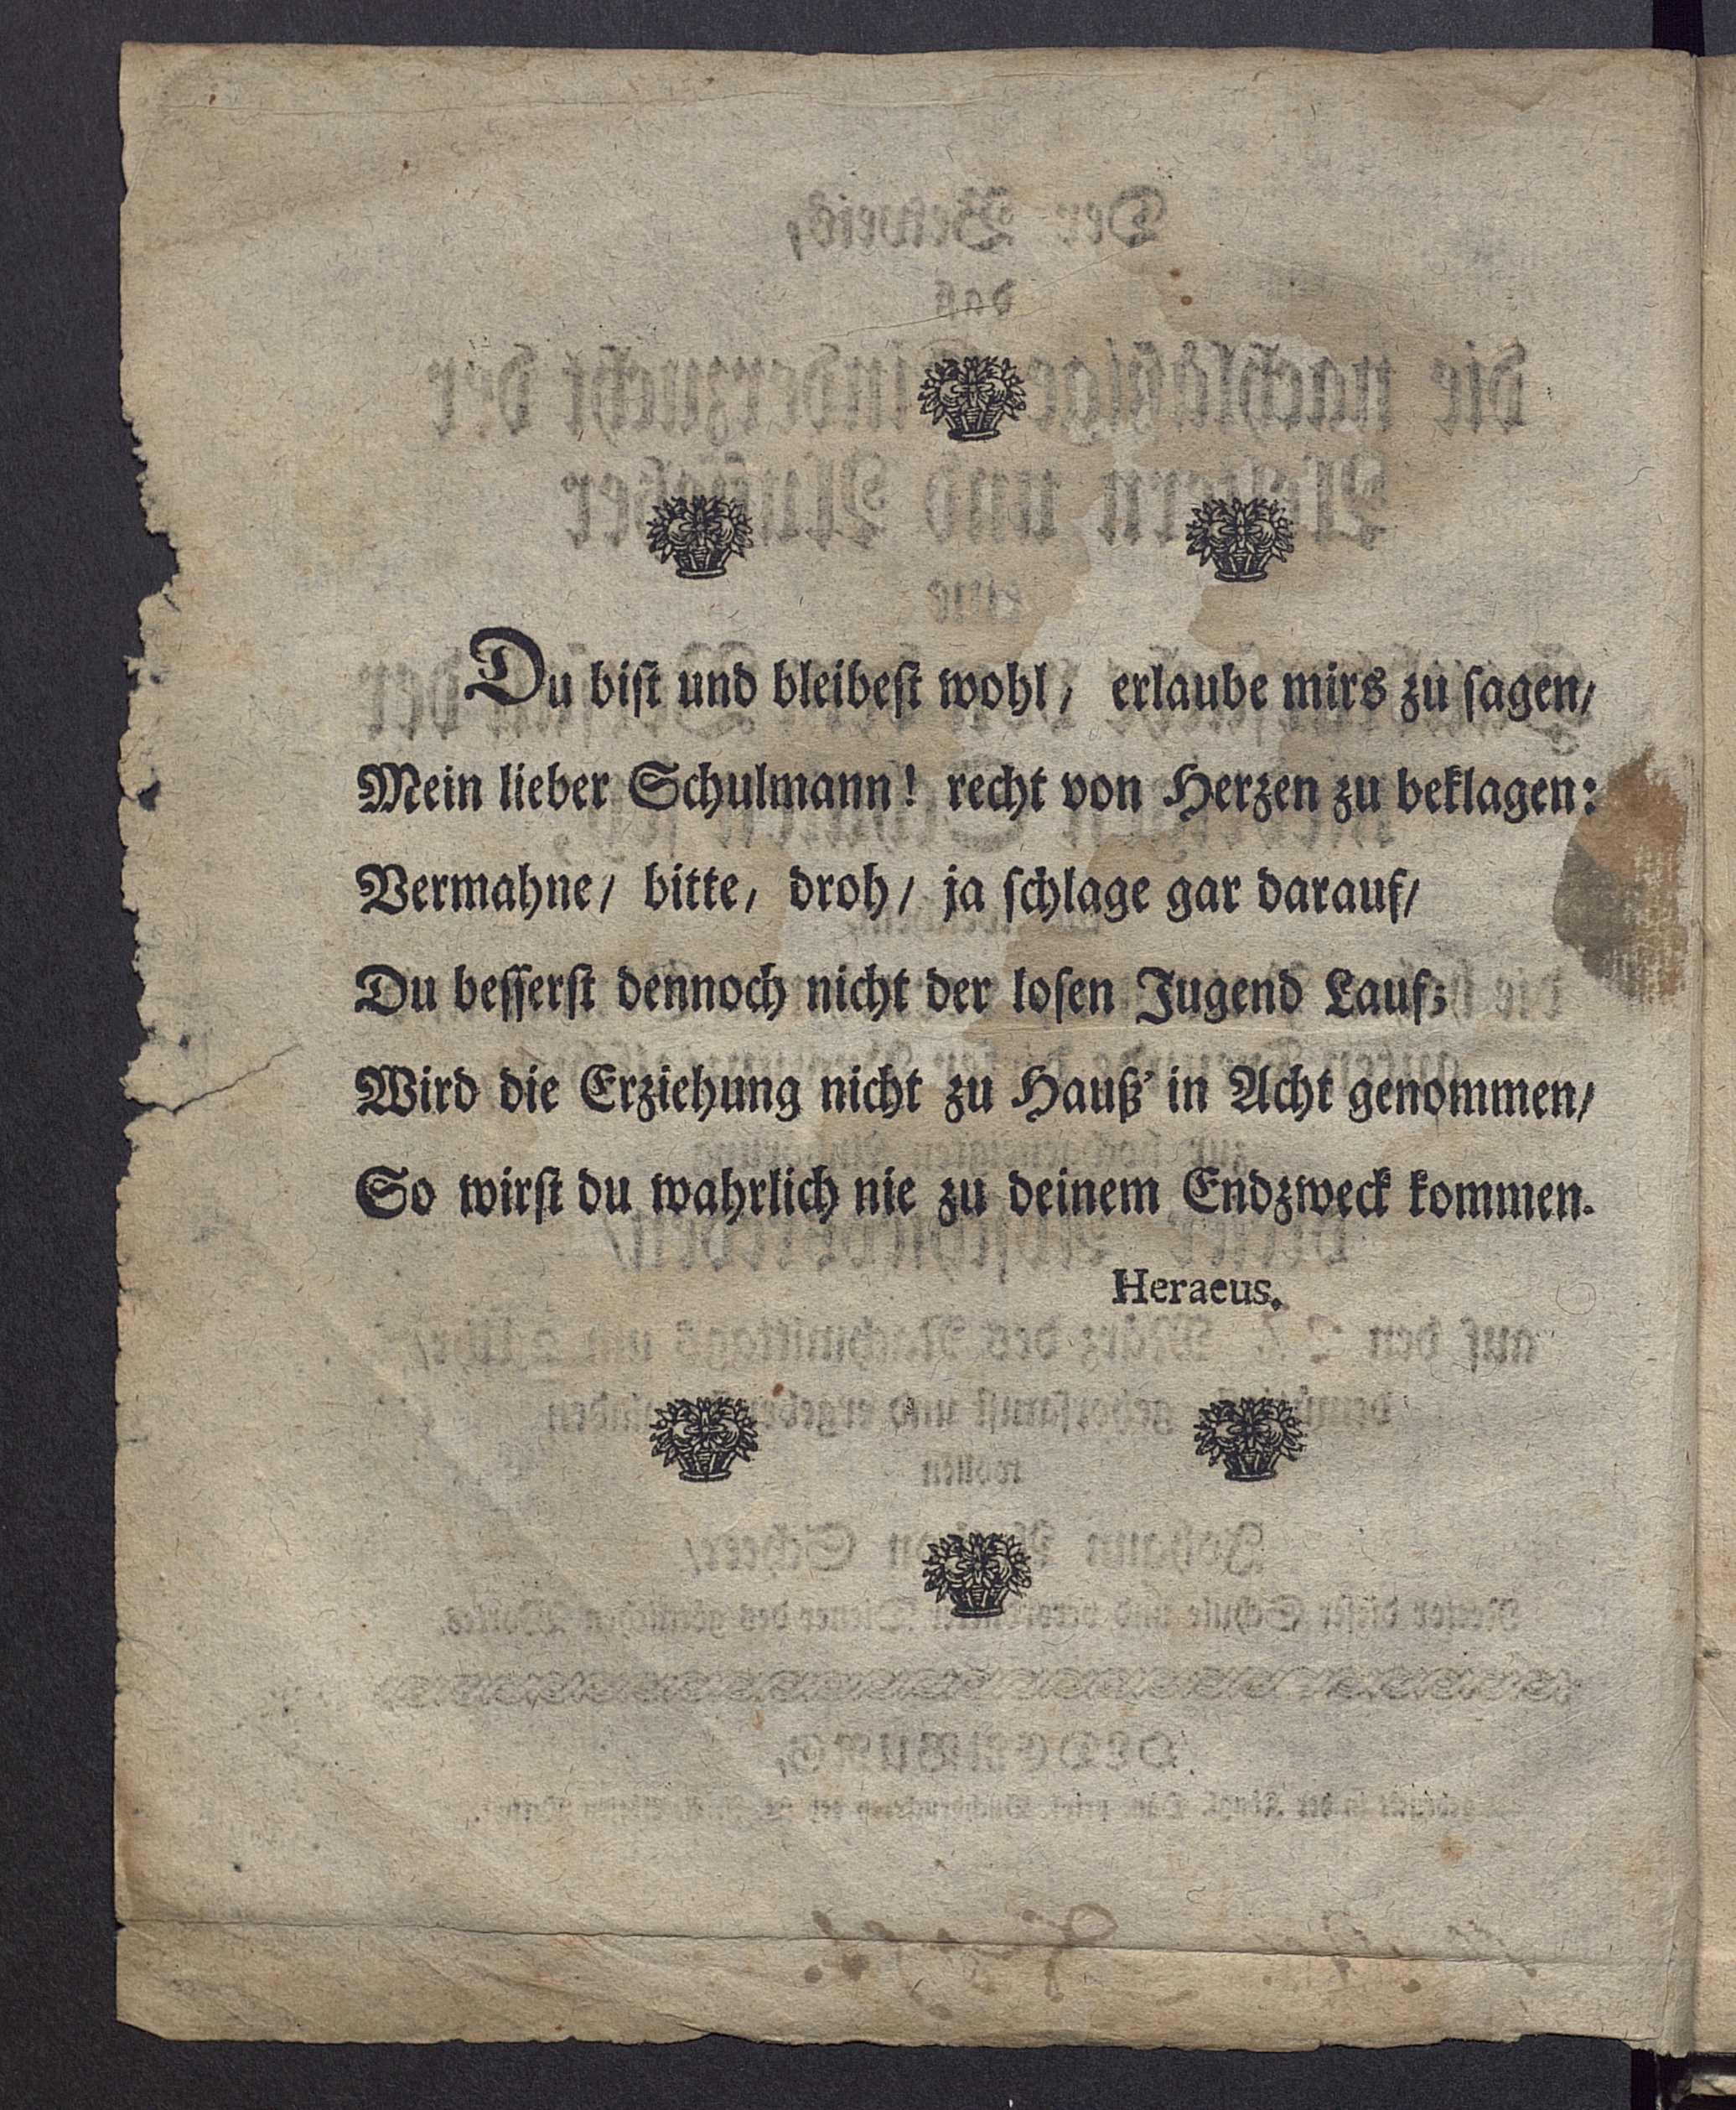 Du bist und bleibest wohl, erlaube mirs zu sagen,
Mein lieber Schulmann! recht von Herzen zu beklagen:
Vermahne, bitte, droh, ja schlage gar darauf,
Du besserst dennoch nicht der losen Jugend Lauf;
Wird die Erziehung nicht zu Hauß' in Acht genommen,
So wirst du wahrlich nie zu deinem Endzweck kommen.
Heraeus.